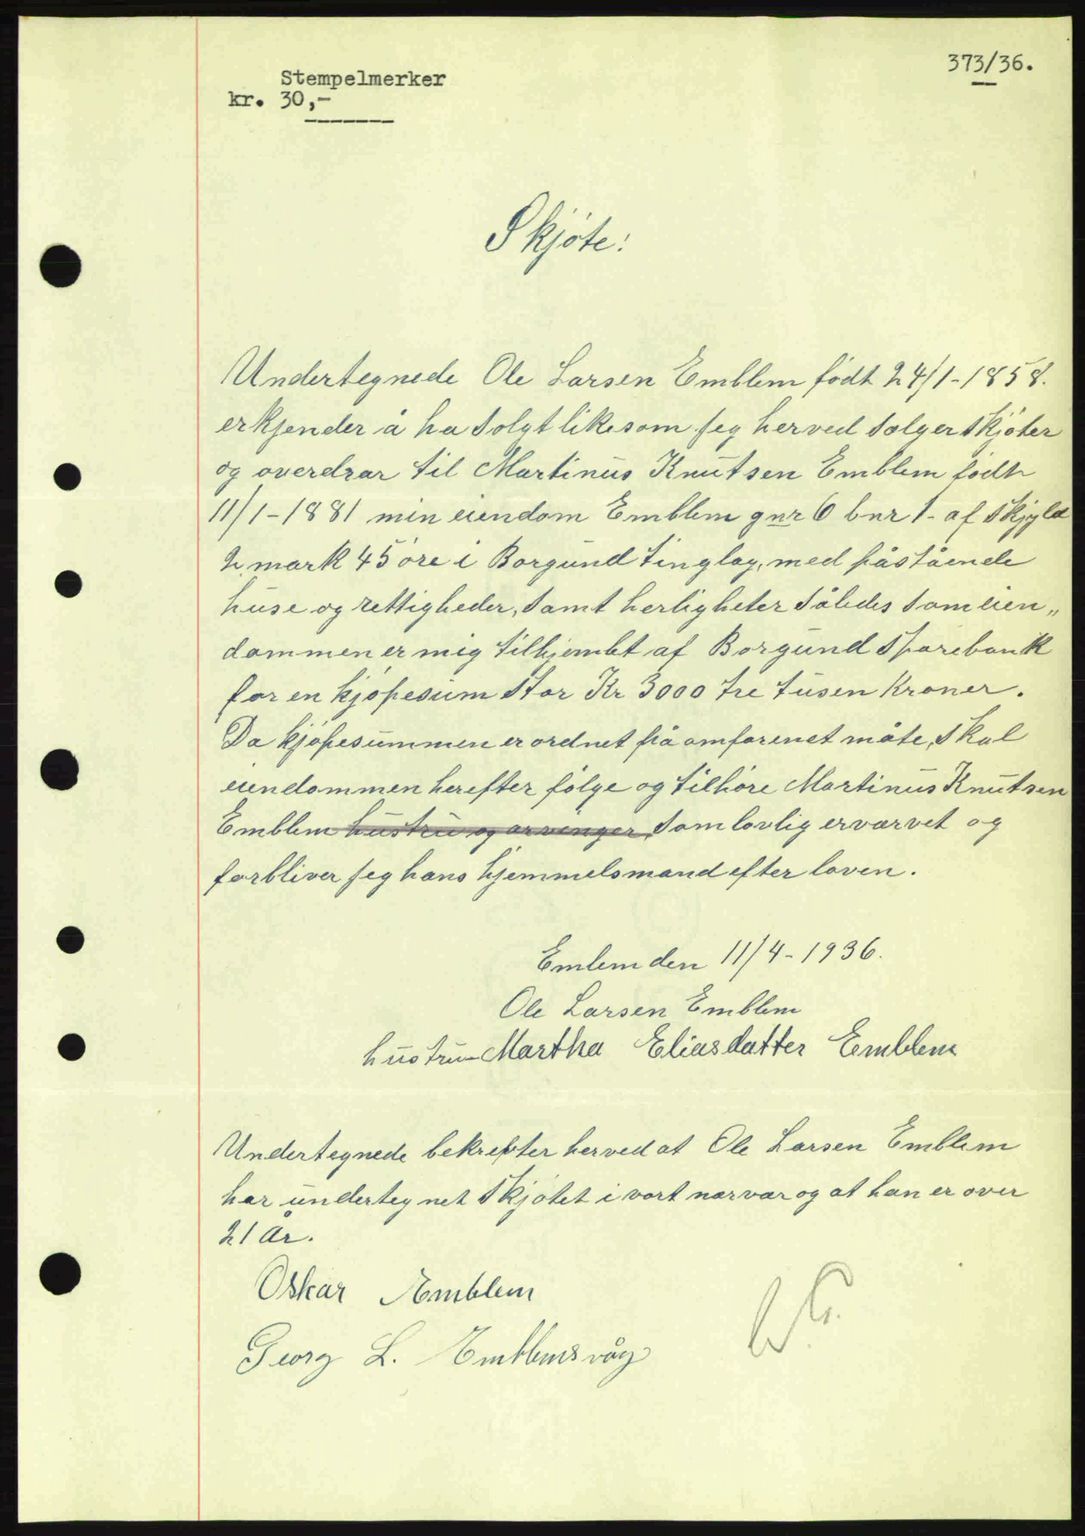 373/36.
Stempelmerker
kr. 30,-
Skjöte:
Undertegnede Ole Larsen Emblem födt 24/1-1858.
erkjender å ha solgt likesom jeg herved sælger skjöter
og overdrar til Martinus Knutsen Emblem födt
11/1-1881 min eiendom Emblem gnr 6 bnr 1- af skjyld
2 mark 45 öre i Borgund tinglag, med påstående
huse og rettigheder, samt herligheter således som eien„
dommen er mig tilhjemlet af Borgund Sparebank
for en kjöpesum stor Kr 3000 tre tusen Kroner.
Da kjöpesummen er ordnet på omforenet måte, skal
eiendommen herefter fölge og tilhöre Martinus Knutsen
Emblem hustru og arvinger, som lovlig erværvet og
forbliver jeg hans hjemmelsmand efter loven.
Emlem den 11/4-1936.
Ole Larsen Emblem
hustru Martha Eliasdatter Emblem
Undertegnede bekrefter herved at Ole Larsen Emblem
har undertegnet skjötet i vort nærvær og at han er over
21 år.
Oskar Emblem
Georg L. Emblemsvåg